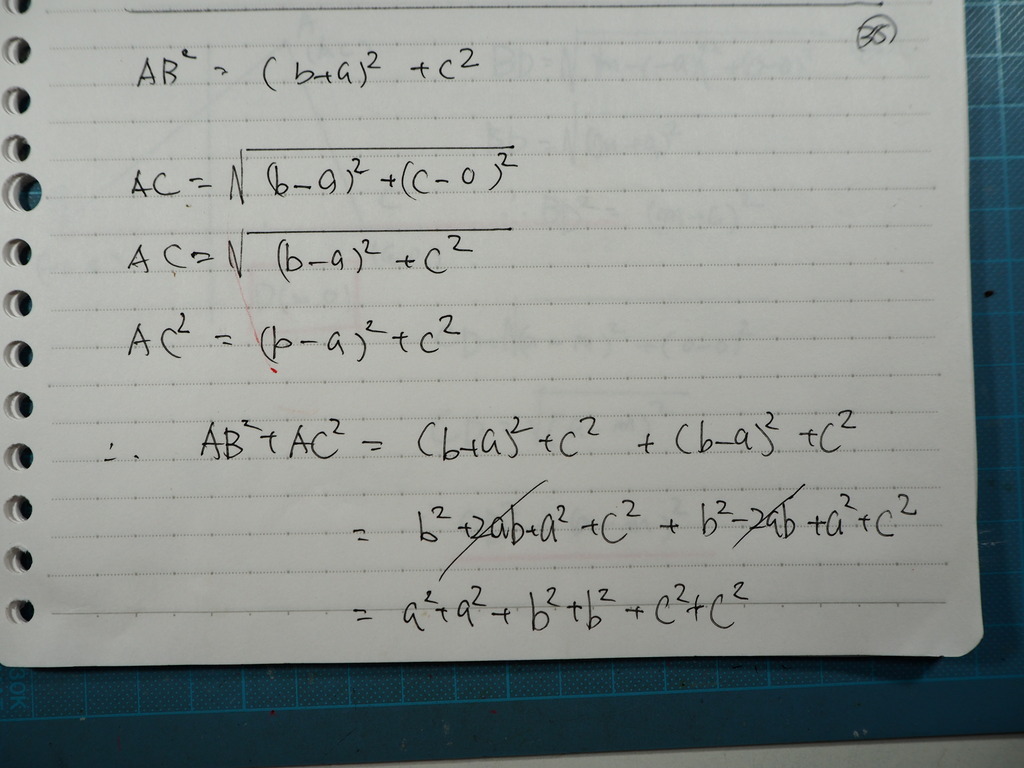 35
AB² = (b+a)² + c²
AC = √(b-a)² + (c-0)²
AC = √(b-a)² + c²
AC² = (b-a)² + c²
∴ AB² + AC² = (b+a)² + c² + (b-a)² + c²
= b² + 2ab + a² + c² + b² - 2ab + a² + c²
= a² + a² + b² + b² + c² + c²